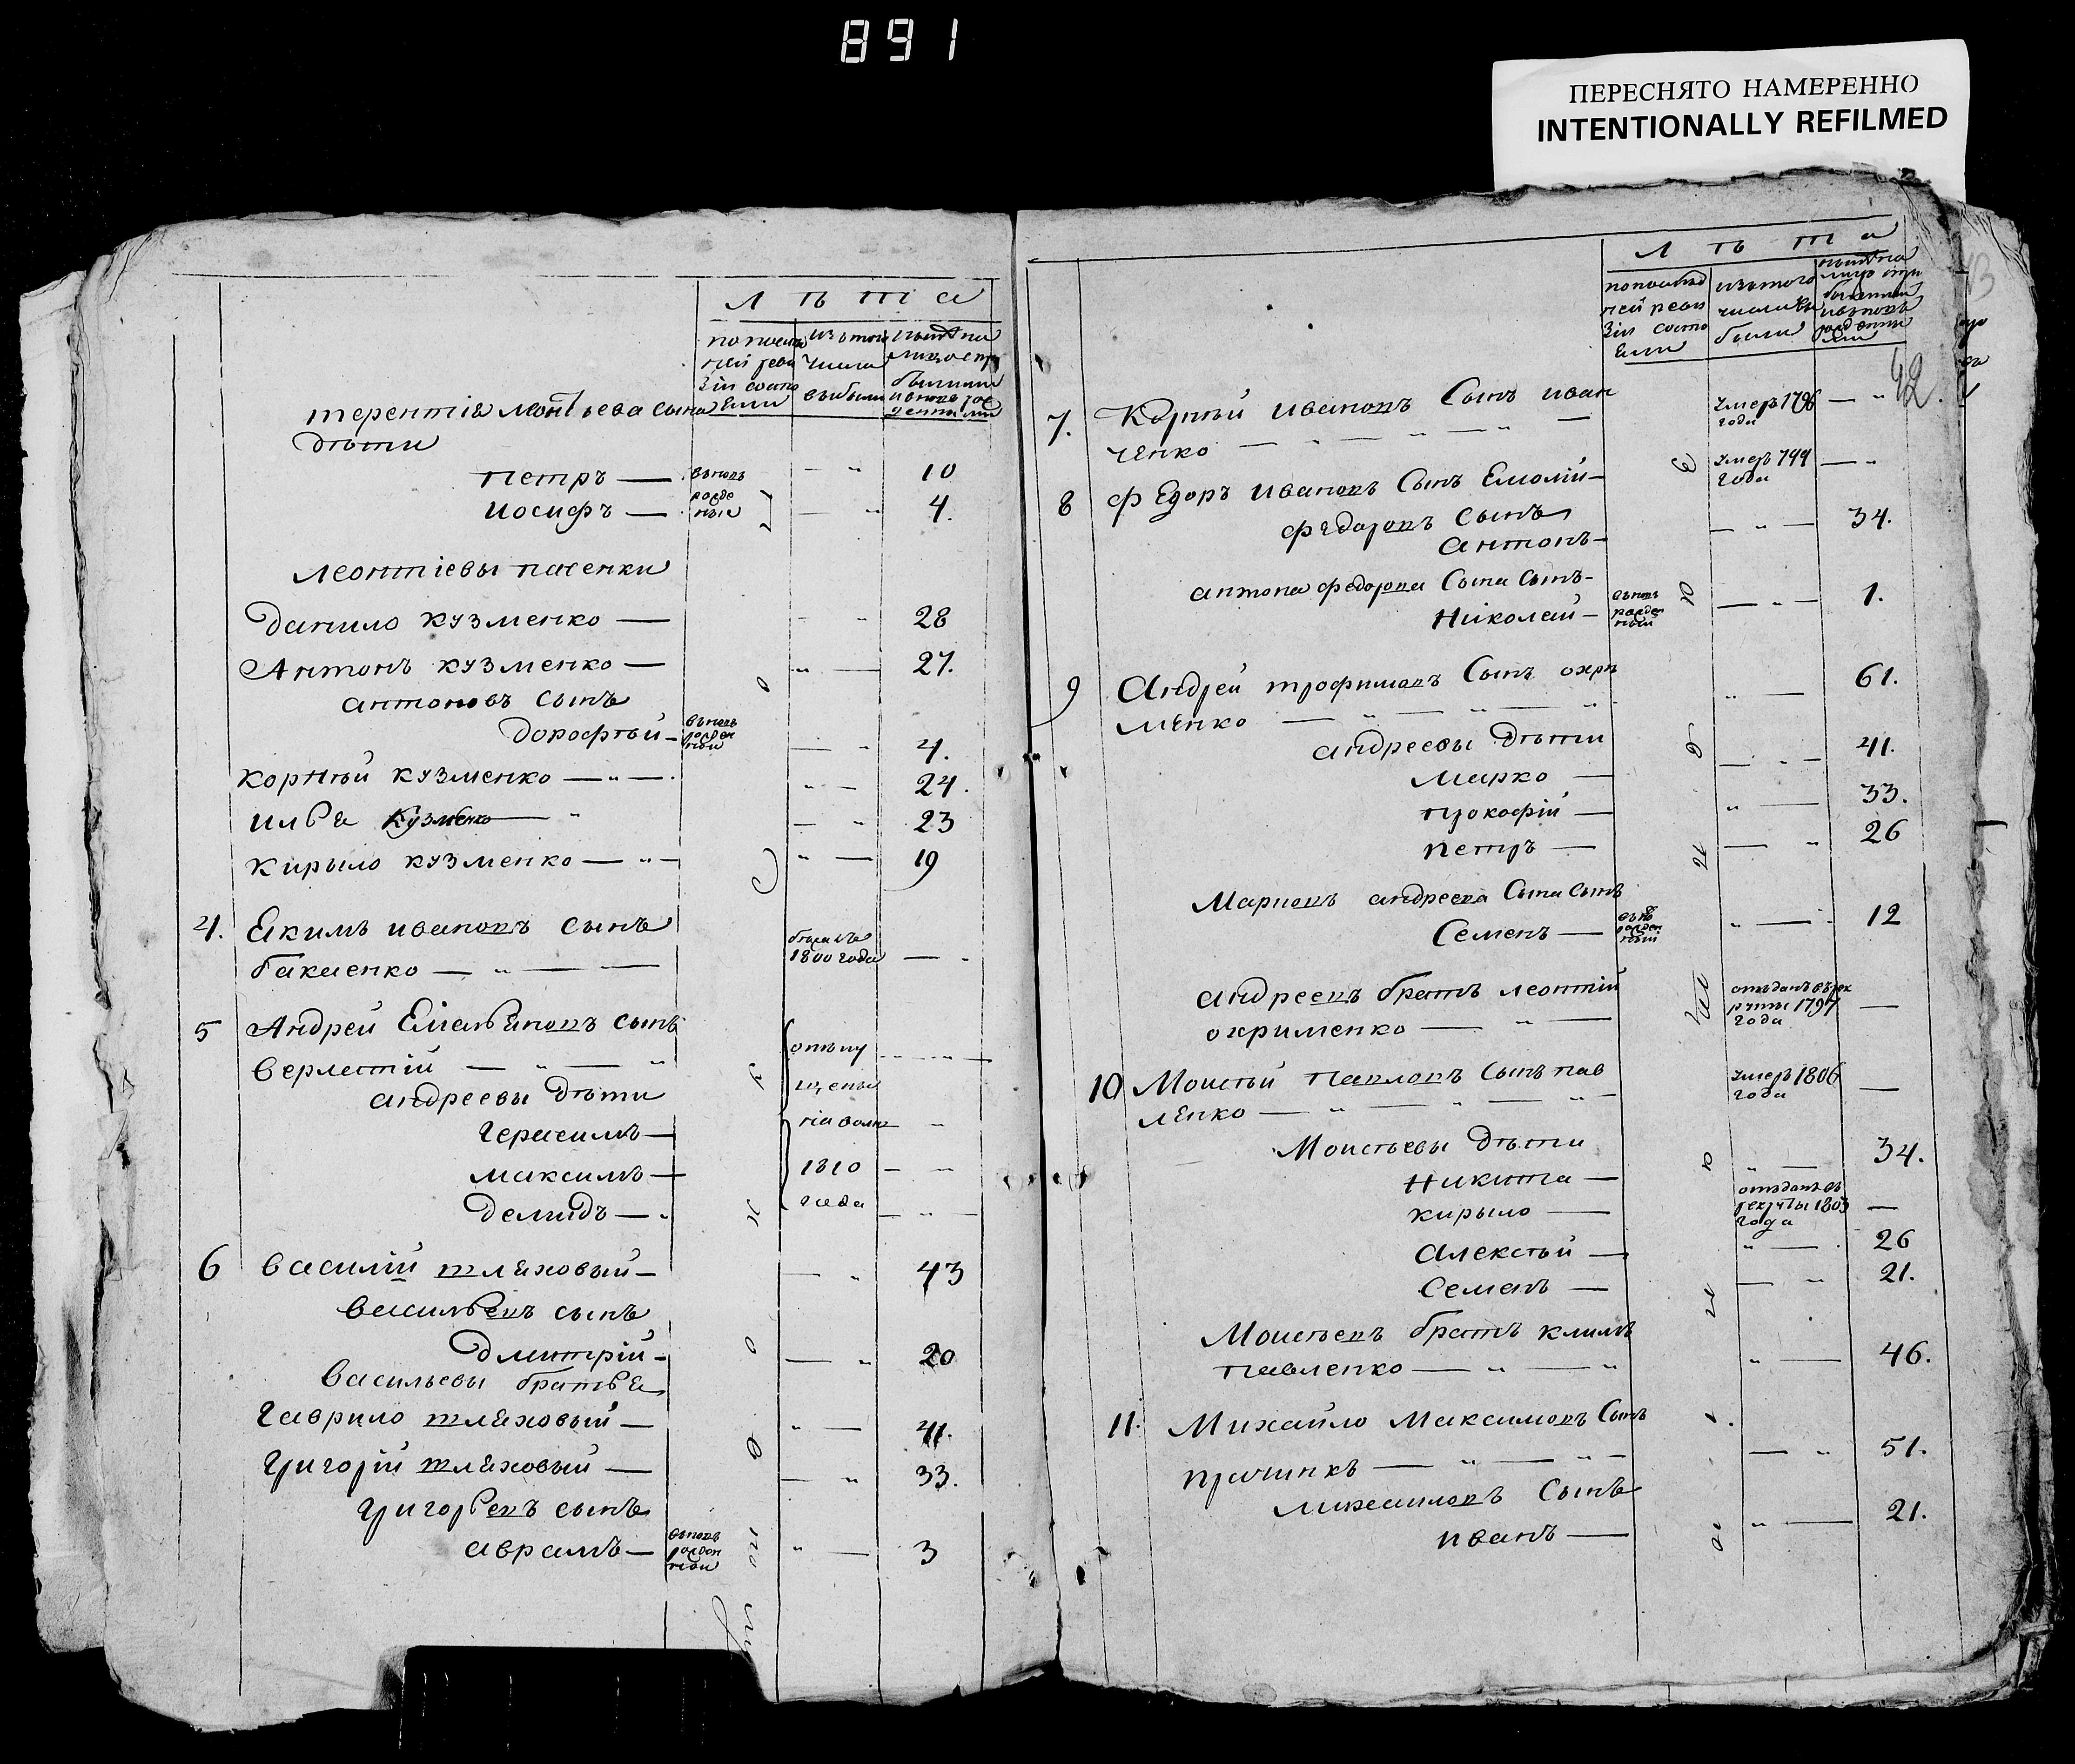 891
ПЕРЕСНЯТО НАМЕРЕННО
INTENTIONALLY REFILMED
Л ѣ т а
изътого
числа
выбыли
терентія леонтьева сына
дѣти
петръ — 10
иосифъ — 4.
леонтіевы пасенки
Данило кузменко — 28
Антонъ кузменко — 27.
антоновъ сынъ
дорофѣй — 4.
корнѣй кузменко — 24.
илья Кузменко — 23
кирыло кузменко — 19
4. Екимъ ивановъ сынъ
бакаенко — 1800 года —
5 Андрей Емельяновъ сынъ
верлестій —
отпу
щены
андреевы дѣти
герасимъ —
на волю
максимъ — 1810
демидъ — года
6 василій шляховый — 43
васильевъ сынъ
дмитрій — 20
васильевы братья
гаврило шляховый — 41.
григорій шляховый — 33.
григорьевъ сынъ
аврамъ — 3
Л ѣ т а
изътого
числавы
были
42
7. Корнѣй ивановъ Сынъ иван
ченко — умеръ 1796 года —
8 Федоръ ивановъ Сынъ Емолій — умеръ 799 года —
федоровъ сынъ
антонъ — 34.
антона федорова Сына Сынъ —
Николай — 1.
9 Андрей трофимовъ Сынъ охри
менко — 61.
андреевы дѣти
Марко — 41.
прокофій — 33.
петръ — 26
Марковъ андреева Сына Сынъ
Семенъ — 12
андреевъ братъ леонтій
охрименко — отъданъ въ рек
руты 1797
года —
10 Моисѣй павловъ Сынъ пав
ленко — умеръ 1806
года —
Моисѣевы дѣти
Никита — 34.
кирыло — отъданъ въ
рекруты 1803
года —
Алексѣй — 26
Семенъ — 21.
Моисѣевъ братъ климъ
павленко — 46.
11. Михайло Максимовъ Сынъ
— 51.
михайловъ Сынъ
иванъ — 21.